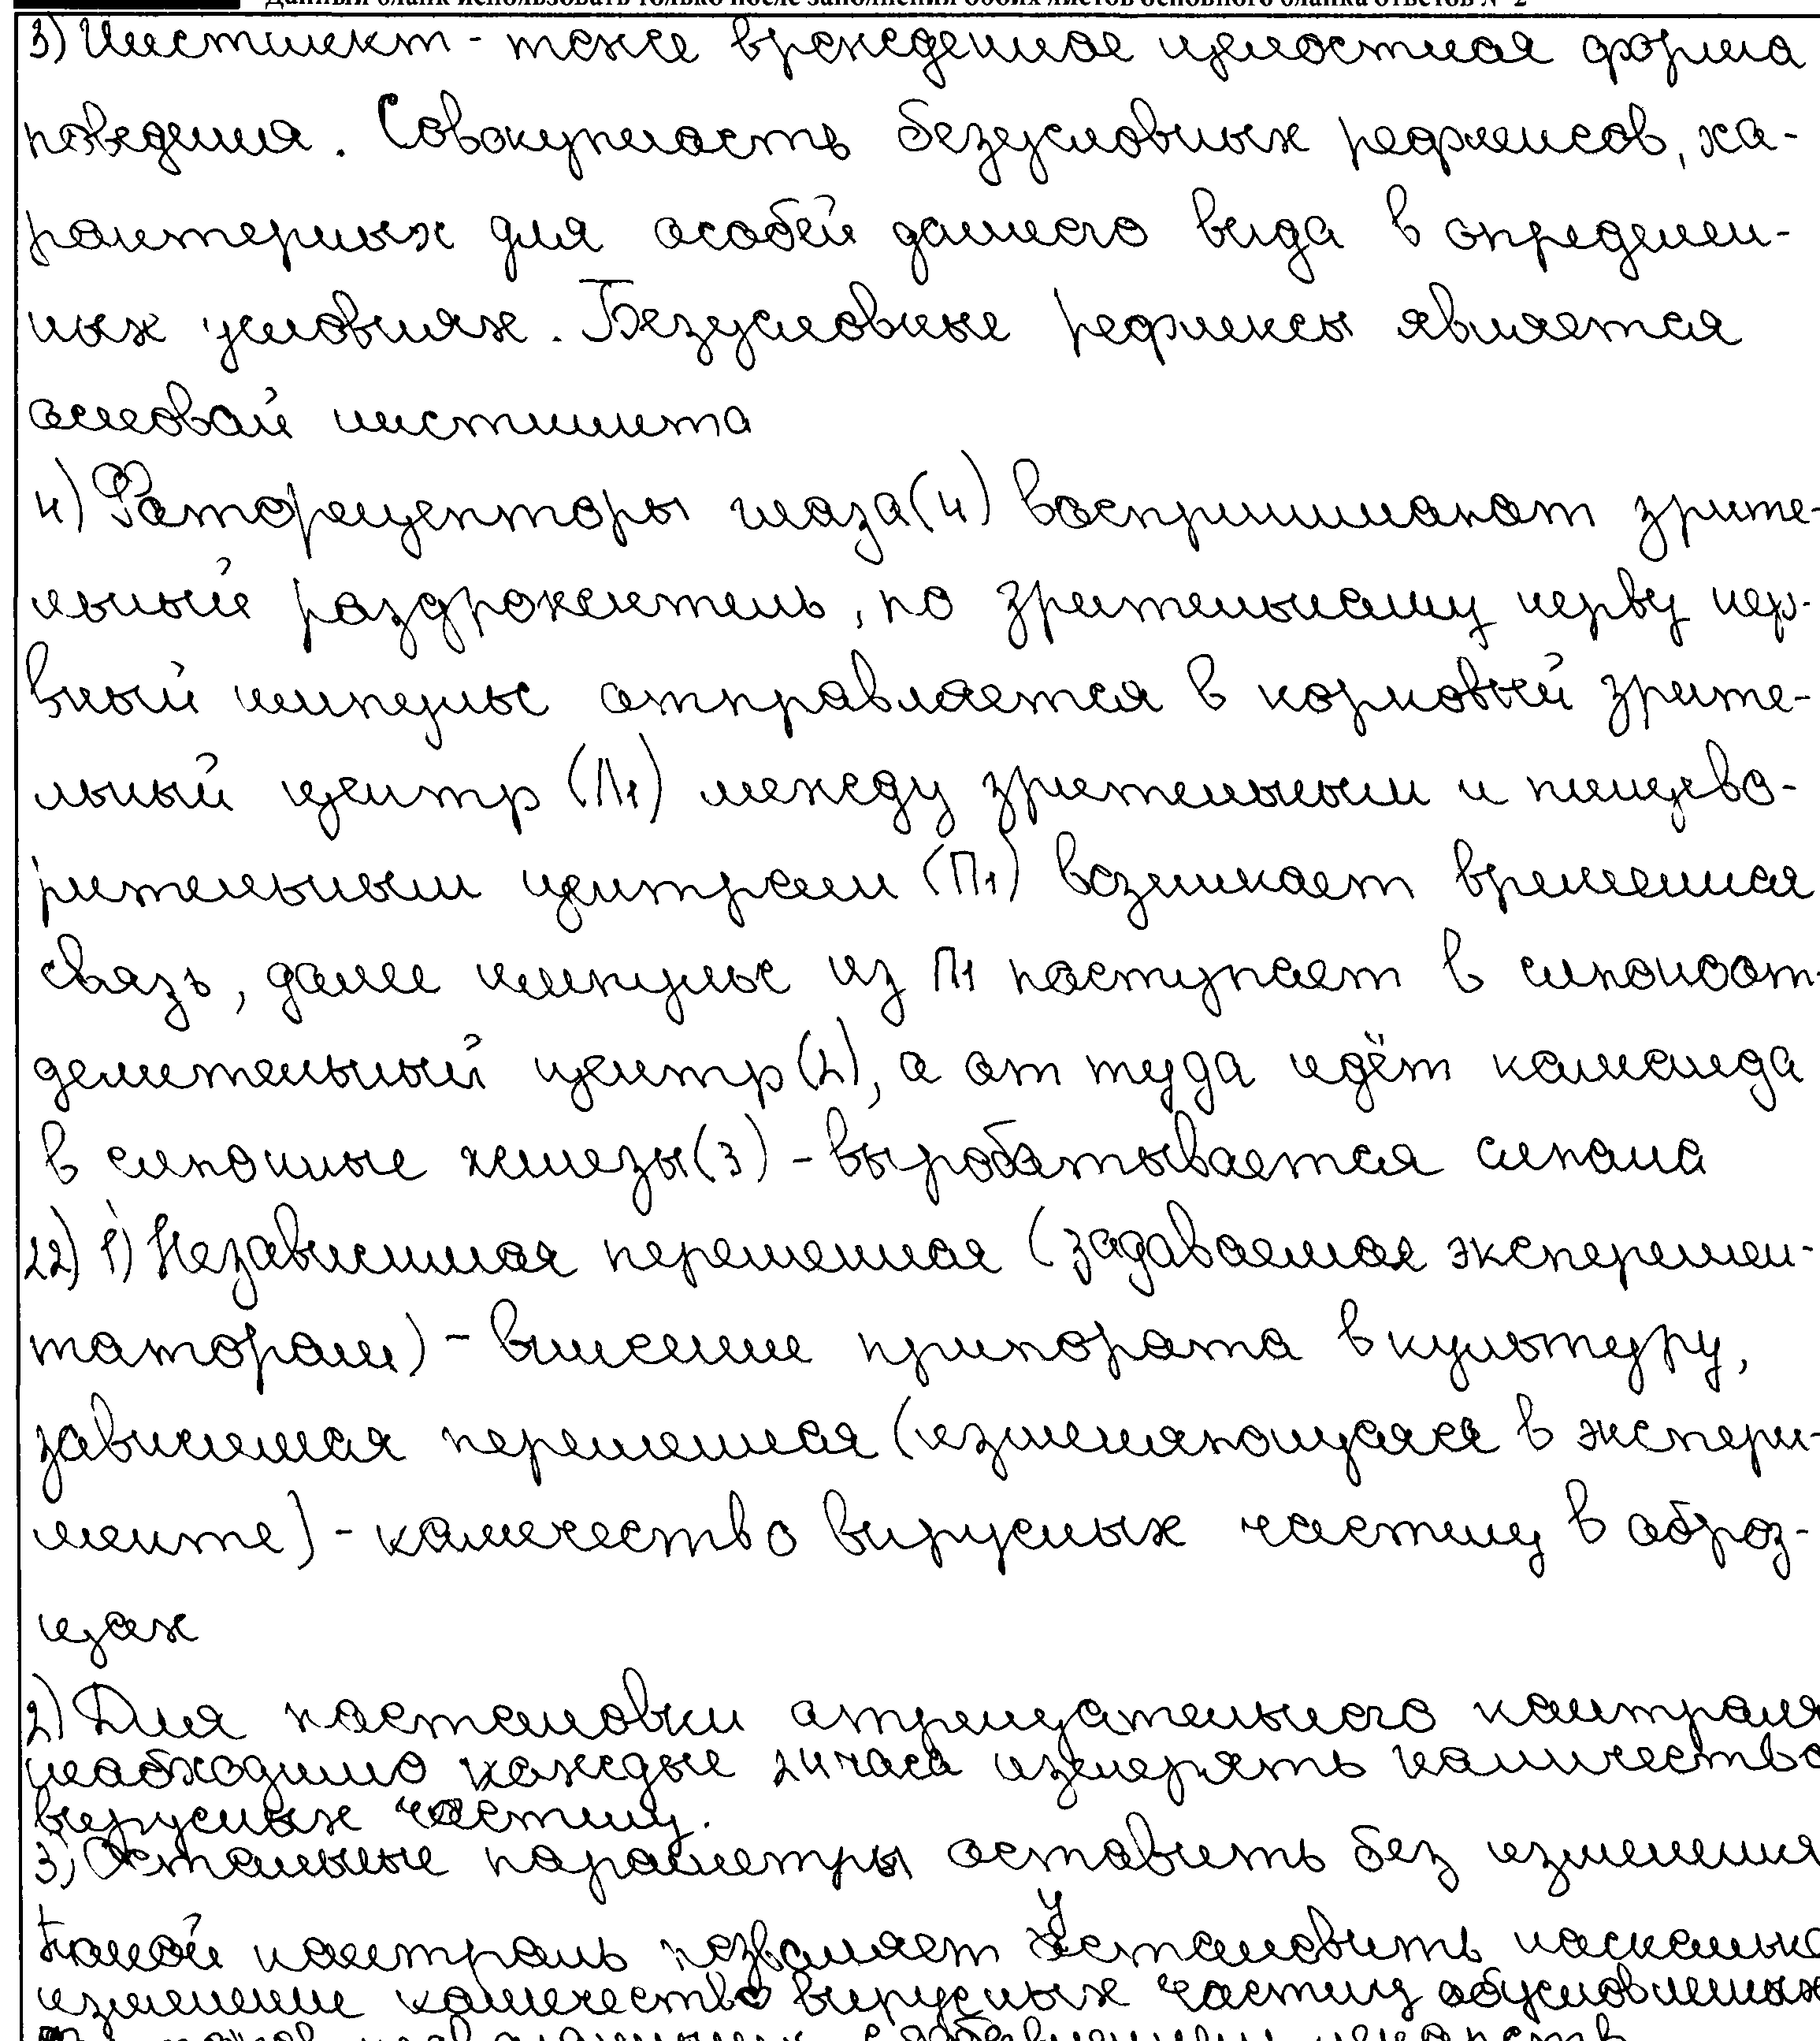 Данный бланк использовать только после заполнения обоих листов основного бланка ответов № 2
3) Инстинкт - тоже врожденная целостная форма
поведения. Совокупность безусловных рефлексов, ха-
рактерных для особей данного вида в определен-
ных условиях. Безусловные рефлексы является
основой инстинкта
4) Фоторецепторы глаза (4) воспринимают зрите-
льный раздражитель, по зрительному нерву нер-
вный импульс отправляется в корковый зрите-
льный центр (Л1) между зрительным и пищева-
рительным центрами (П1) возникает временная
связь, далее импульс из П1 поступает в слюноот-
делительный центр (2), а от туда идёт команда
в слюнные железы (3) - вырабатывается слюна
22) 1) Независимая переменная (задаваемая эксперемен-
татором) - внесение припората в культуру,
зависимая переменная (изменяющуаяся в экспери-
менте) - количество вирусных частиц в образ-
цах
2) Для постановки отрицательного контроля
необходимо каждые 24 часа измерять количество
вирусных частиц.
3) Остальные параметры оставить без изменения
Такой контроль позволяет установить насколько
изменение количество вирусных частиц обусловленных